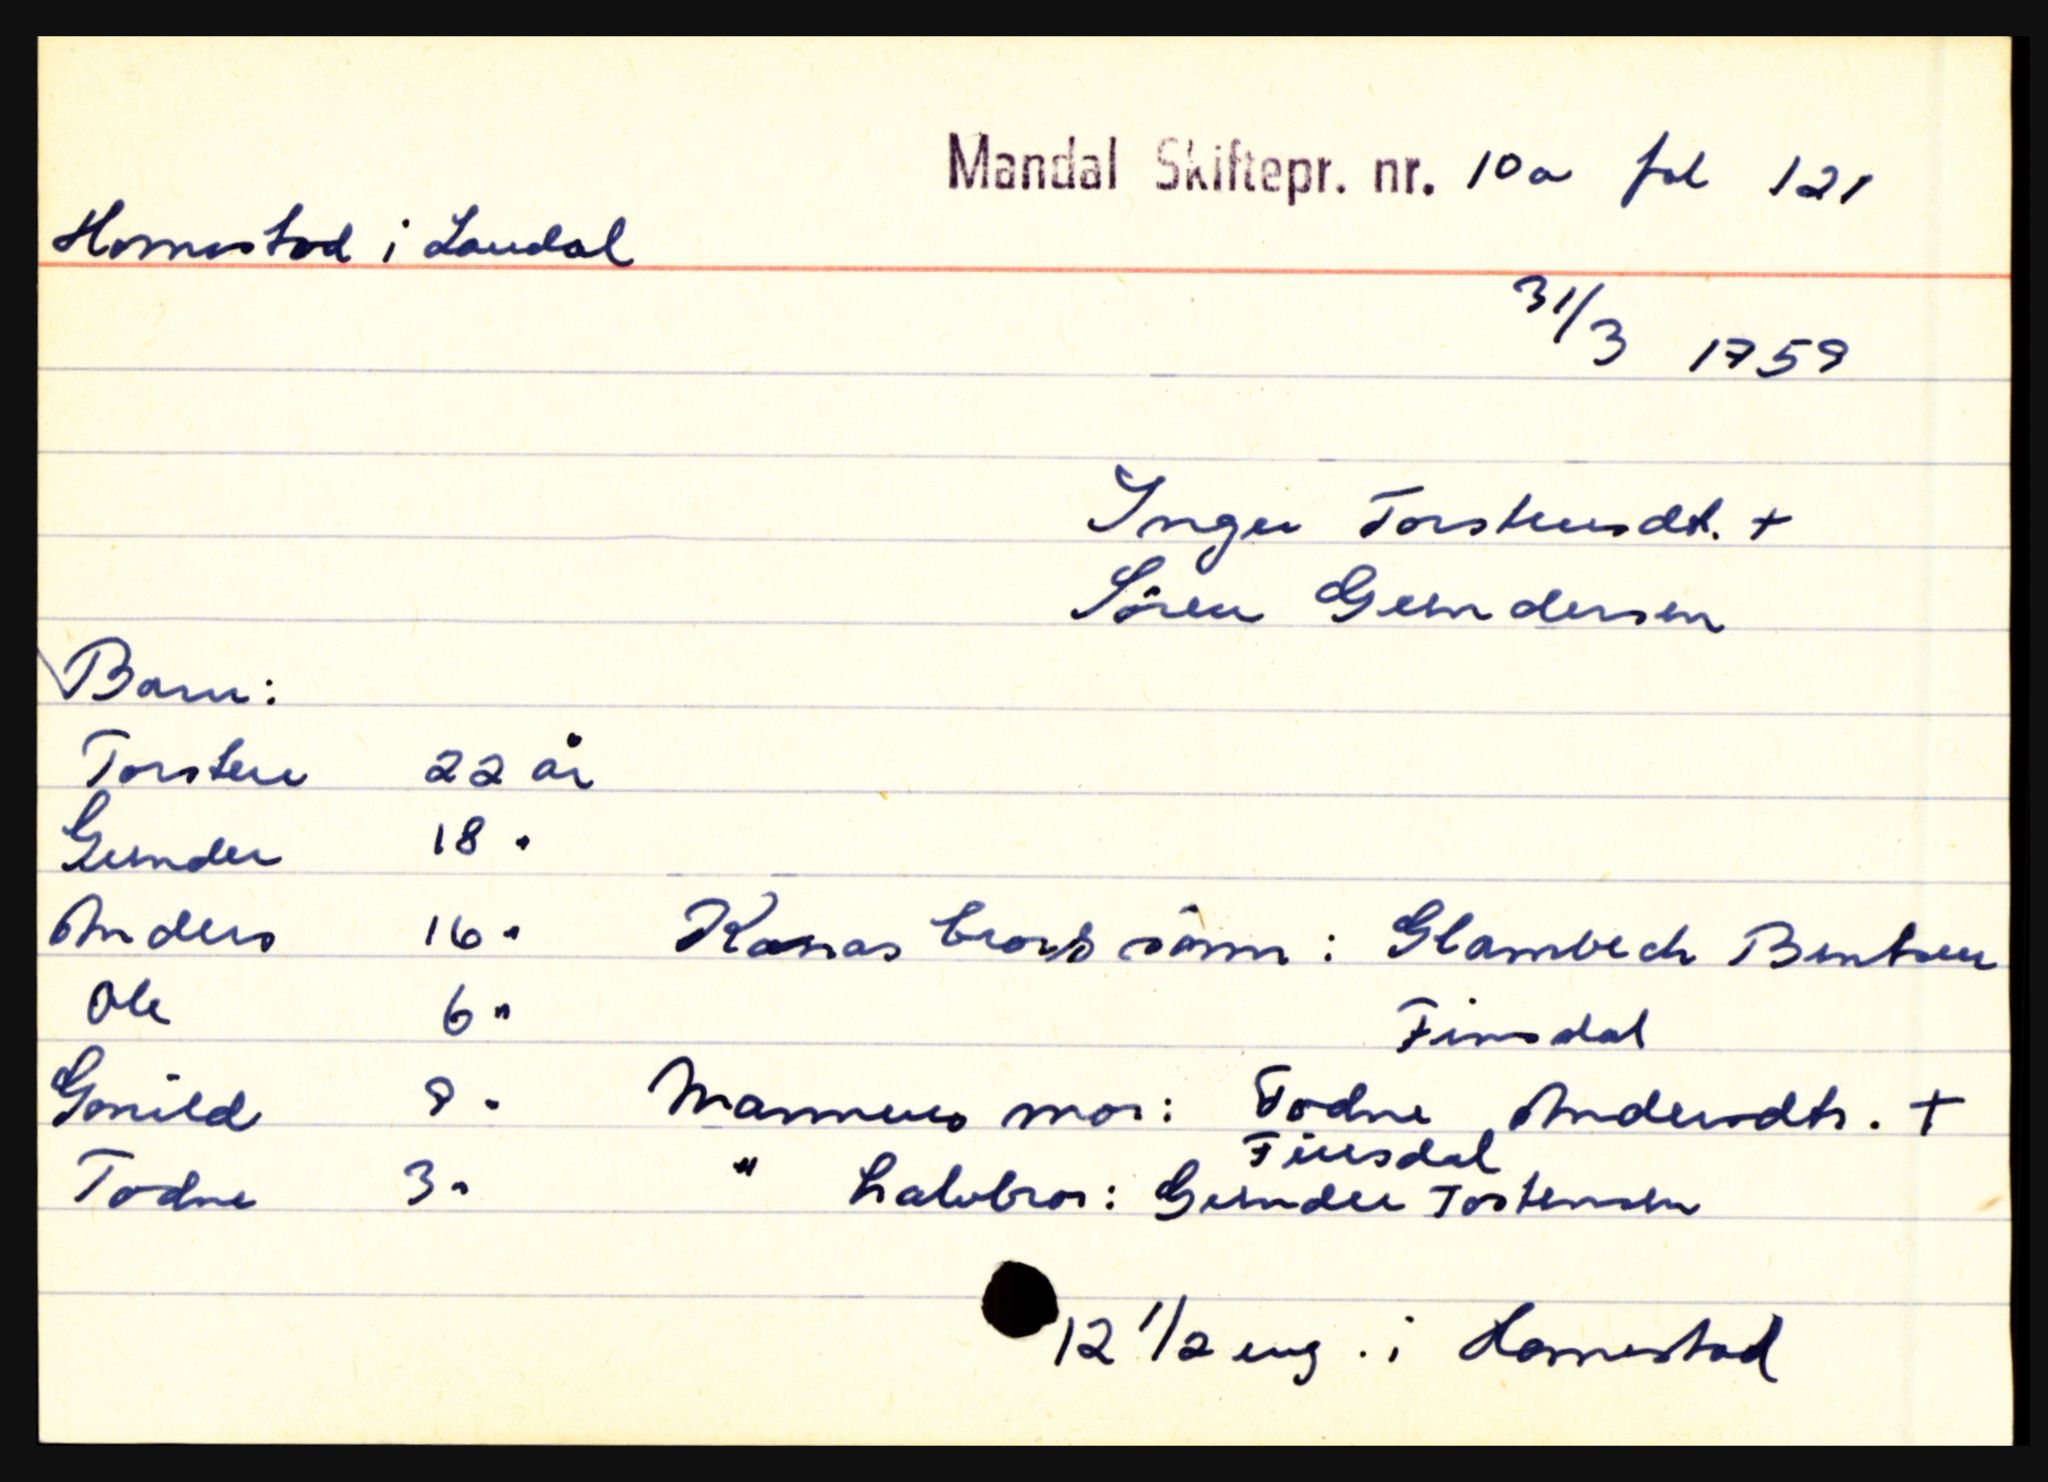 Mandal Skiftepr. nr. 10a fol 121
Homestad i Laudal
31/3 1759
Inger Torstensdt. +
Sören Gundersen
Barn:
Torsten 22 år
Gunder 18 "
Anders 16 " Konas brors sönn : Glambech Bentsen
Ole 6 " Finsdal
Gonild 9 " Mannens mor : Todne Andersdtr. +
Finsdal
Todne 3 " " halvbror : Gunder Tostensen
12 1/2 eng . i Homestad